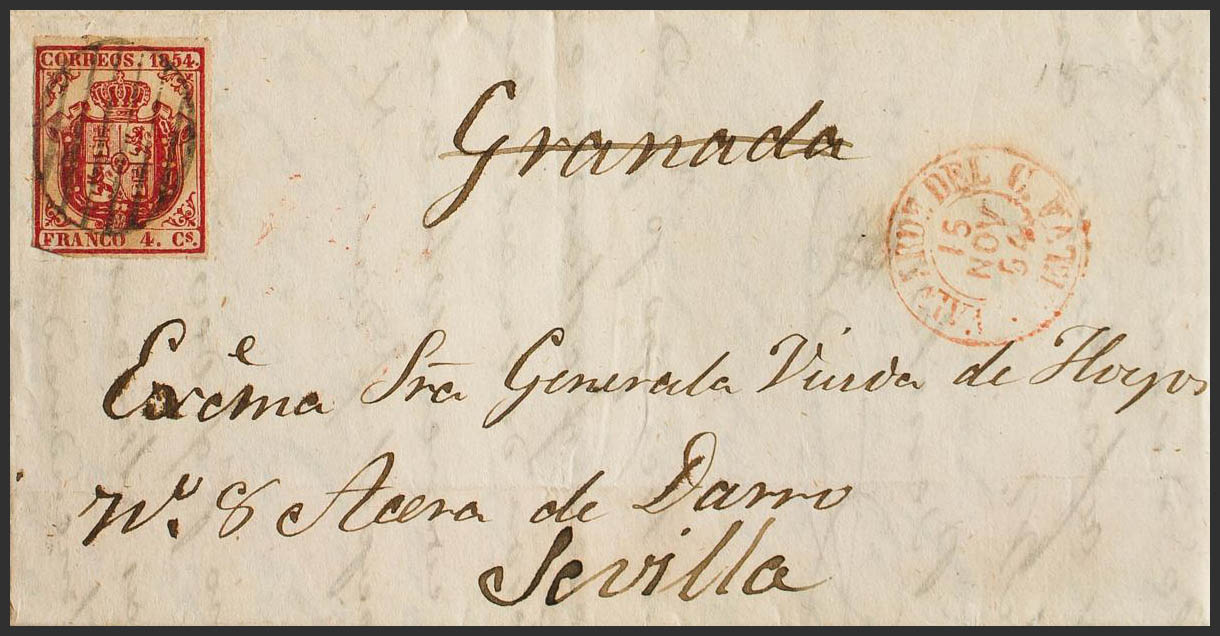 CORREOS. 1854.
FRANCO 4. Cs.
Granada
VALVERDE DEL C.
15
NOV
54
Exc̊ema Sra Generala Viuda de Hoyos
Nº. 8 Acera de Darro
Sevilla